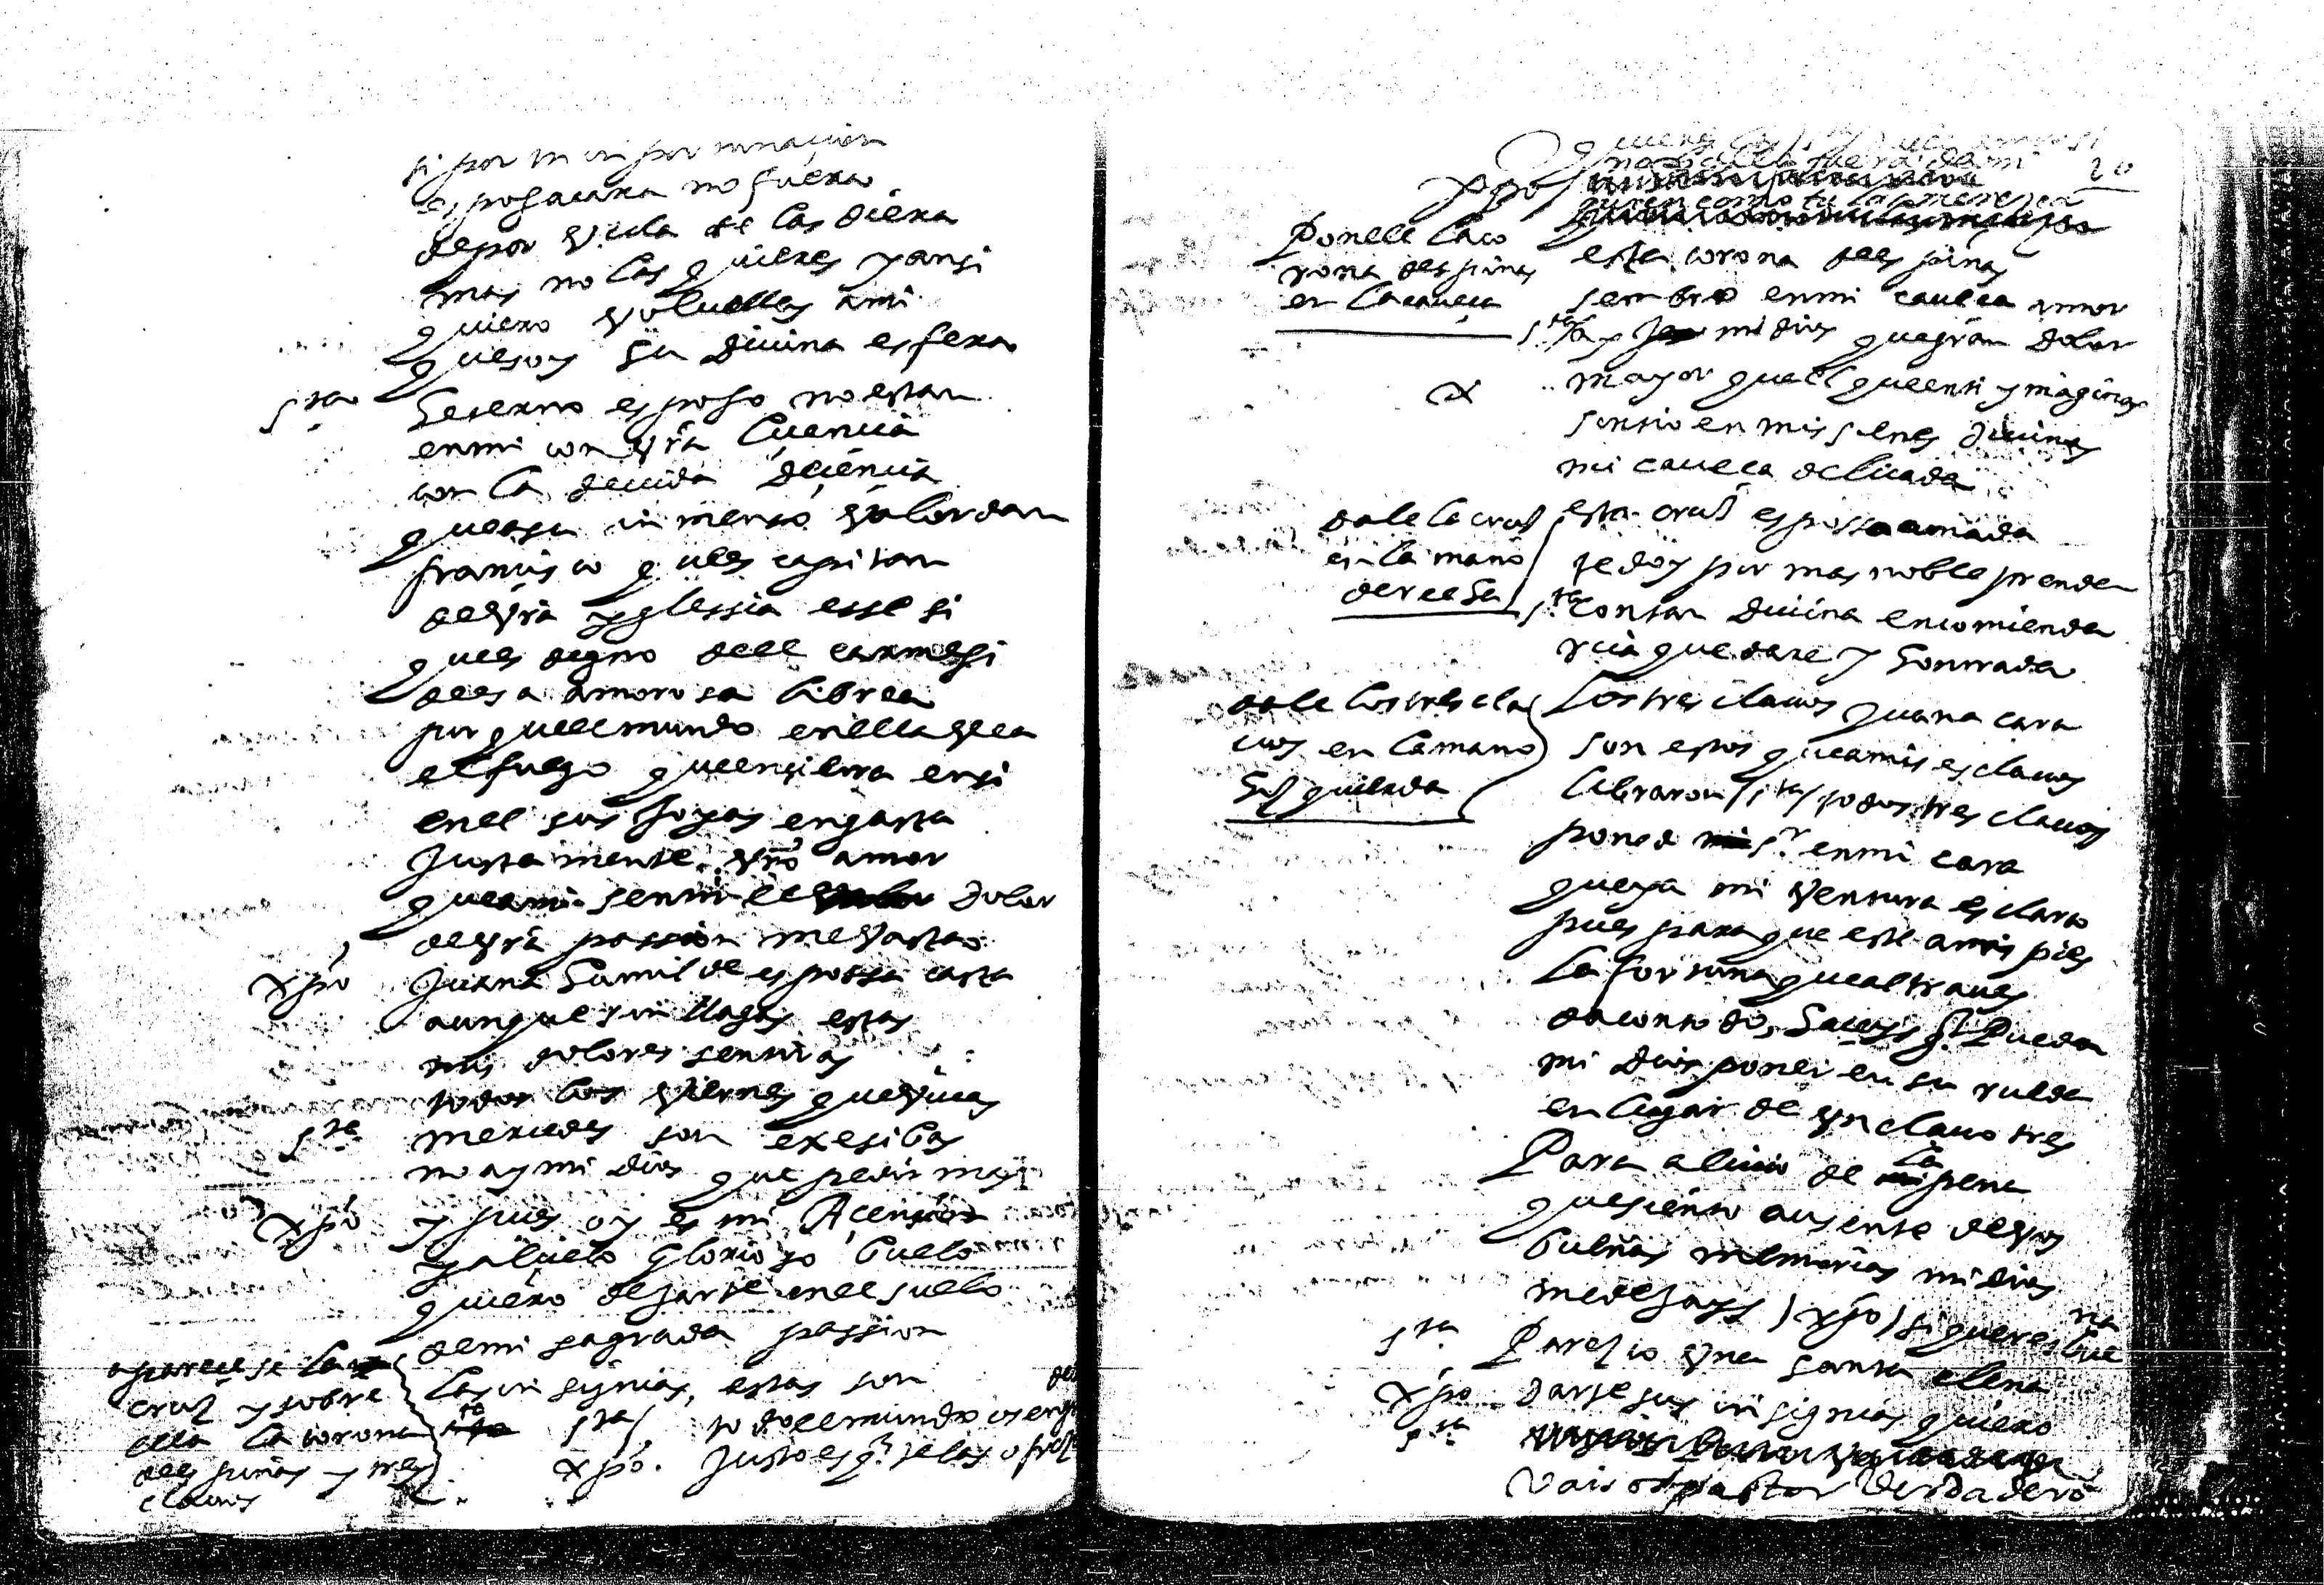 si por mi yn por
esposa cara no fuera
depor vida te las diera
mas no las quieres y ansi
quiero voluellas a mi
que soy su diuina esfera
sta eterno esposo no estan
en mi con vra licencia
con la deuida decencia
que a su inmenso valor dan
francisco ques capitan
de vra yglessia esse si
ques digno dele carmesi
desa amorosa librea
por quel mundo en ella vea
el fuego que ensierra en si
en el sus joyas engasta
justamente vro amor
que a mi sentir el dolor
de vra passion me vasta
xpo Juana humilde espossa casta
aunque sin llagas estas
mis dolores sentiras
todos los viernes que viuas
sta mercedes son exesibas
no ay mi dios que pedir mas
xpo y pues oy es mi Acension
y al cielo glorioso buelo
quiero dejarte en el suelo
de mi sagrada passion
las insignias, estas son
aparecese la
cruz y sobre
ella la corona
despinas y tres
clauos
sta todo el mundo os
xpo. Justo es q. te las
20
xpo
quien como tu la meresca
Ponele la co
rona despinas
en la caueça
esta corona despinas
sembro en mi caueça amor
sta ay mi dios que gran dolor
x mayor quel que en ti ymaginas
sintio en mis sienes diuinas
mi caueça delicada
dale la cruz
en la mano
derecha
esta cruz espossa amada
te doy por mas noble prenda
sta con tan diuina encomienda
rica quedare y honrrada
dale los tres cla
uos en la mano
hizquierda
los tres clauos juana cara
son estos que a mis esclauos
libraron / sta / todos tres clauos
poned sr. en mi cara
que ya mi ventura es clara
pues para que este a mis pies
la fortuna que al traues
da con todo, haceys q. Pueda
mi dios poner en su rueda
en lugar de vn clauo tres
Para aliuio de la pena
que siento ausente de vos
buenas memorias mi dios
me dejays / xpo / si queres
sta Paresco vna santa elena
xpo darte sus insignias quiero
sta
Vais os pastor verdadero